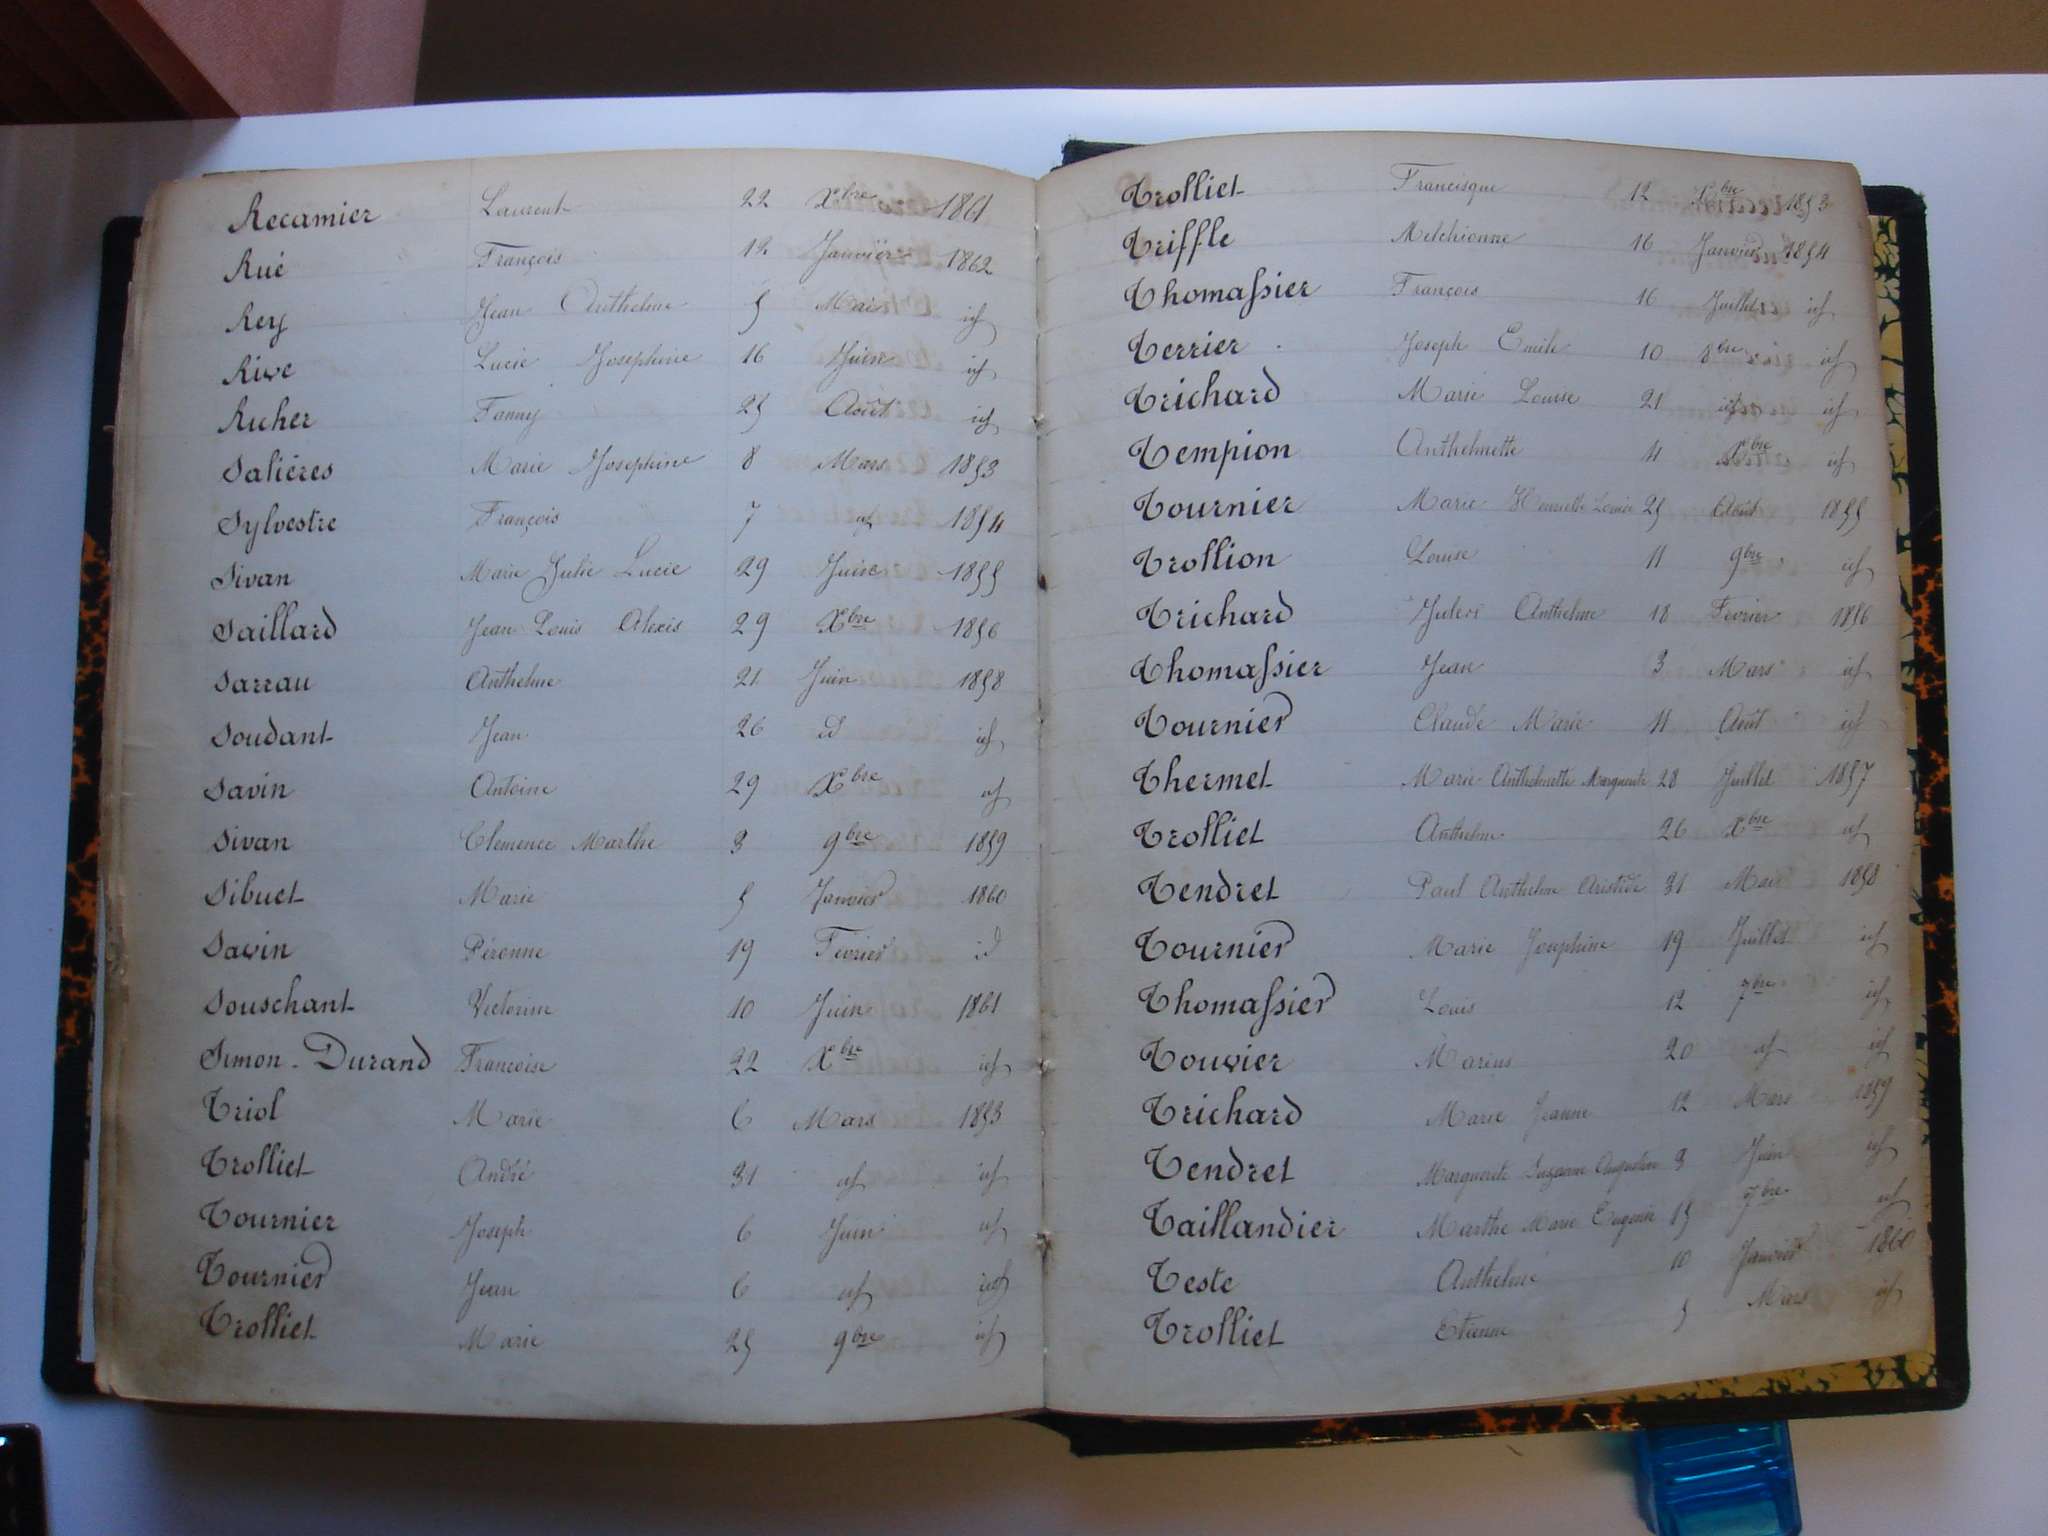 Recamier Laurent 22 Xbre 1861
Rué François 12 Janvier 1862
Rey Jean Anthelme 5 Mai id
Rive Lucie Josephine 16 Juin id
Richer Fanny 25 Août id
Salières Marie Josephine 8 Mars 1853
Sylvestre François 7 id 1854
Sivan Marie Julie Lucie 29 Juin 1855
Saillard Jean Louis Alexis 29 Xbre 1856
Sarrau Anthelme 21 Juin 1858
Soudant Jean 26 id id
Savin Antoine 29 Xbre id
Sivan Clemence Marthe 3 9bre 1859
Sibuet Marie 5 Janvier 1860
Savin Péronne 19 Février id
Souschant Victorine 10 Juin 1861
Simon-Durand Francoise 22 Xbre id
Triol Marie 6 Mars 1853
Trolliet André 31 id id
Tournier Joseph 6 Juin id
Tournier Jean 6 id id
Trolliet Marie 25 9bre id
Trolliet Francisque 12 Xbre 1853
Triffle Melchionne 16 Janvier 1854
Thomassier François 16 Juillet id
Terrier Joseph Emile 10 8bre id
Trichard Marie Louise 21 id id
Tempion Anthelmette 4 Xbre id
Tournier Marie Henriette Louise 25 Août 1855
Trollion Louise 11 9bre id
Trichard Jules Anthelme 18 Fevrier 1856
Thomassier Jean 3 Mars id
Tournier Claude Marie 11 Août id
Thermet Marie Anthelmette Marguerite 28 Juillet 1857
Trolliet Anthelme 26 Xbre id
Tendret Paul Anthelme Aristide 31 Mai 1858
Tournier Marie Josephine 19 Juillet id
Thomassier Louis 12 7bre id
Touvier Marius 20 id id
Trichard Marie Jeanne 12 Mars 1859
Tendret Marguerite Suzanne Augustine 3 Juin id
Taillandier Marthe Marie Eugenie 15 7bre id
Teste Anthelme 10 Janvier 1860
Trolliet Etienne 5 Mars id